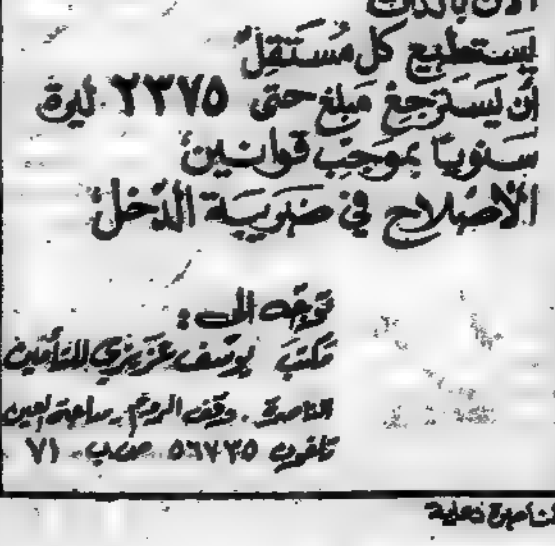 الآن بالذات
يستطيع كل مستقل
أن يسترجع مبلغ حتى ٢٣٧٥ ليرة
سنويا بموجب قوانين
الأصلاح في ضريبة الدخل
توجه الى:
مكتب يوسف عزيزي للتأمين
الناصرة. وقف الروم. ساحة العين
تلفون ٥٦٧٣٥ ص.ب. ٧١